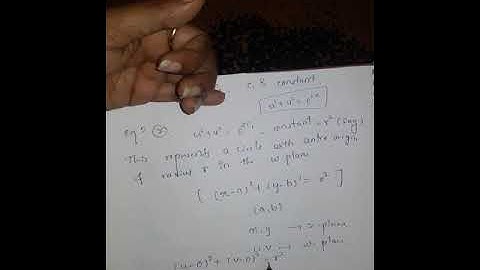 constant
u²+v² = e^2x
u²+v² = e^2x = constant = r² (say)
This represents a circle with centre origin
of radius r in the w plane
[ (x-a)²+(y-b)² = r² ]
(a,b)
x, y → z plane
u, v → w plane
(u-0)² + (v-0)² = r²